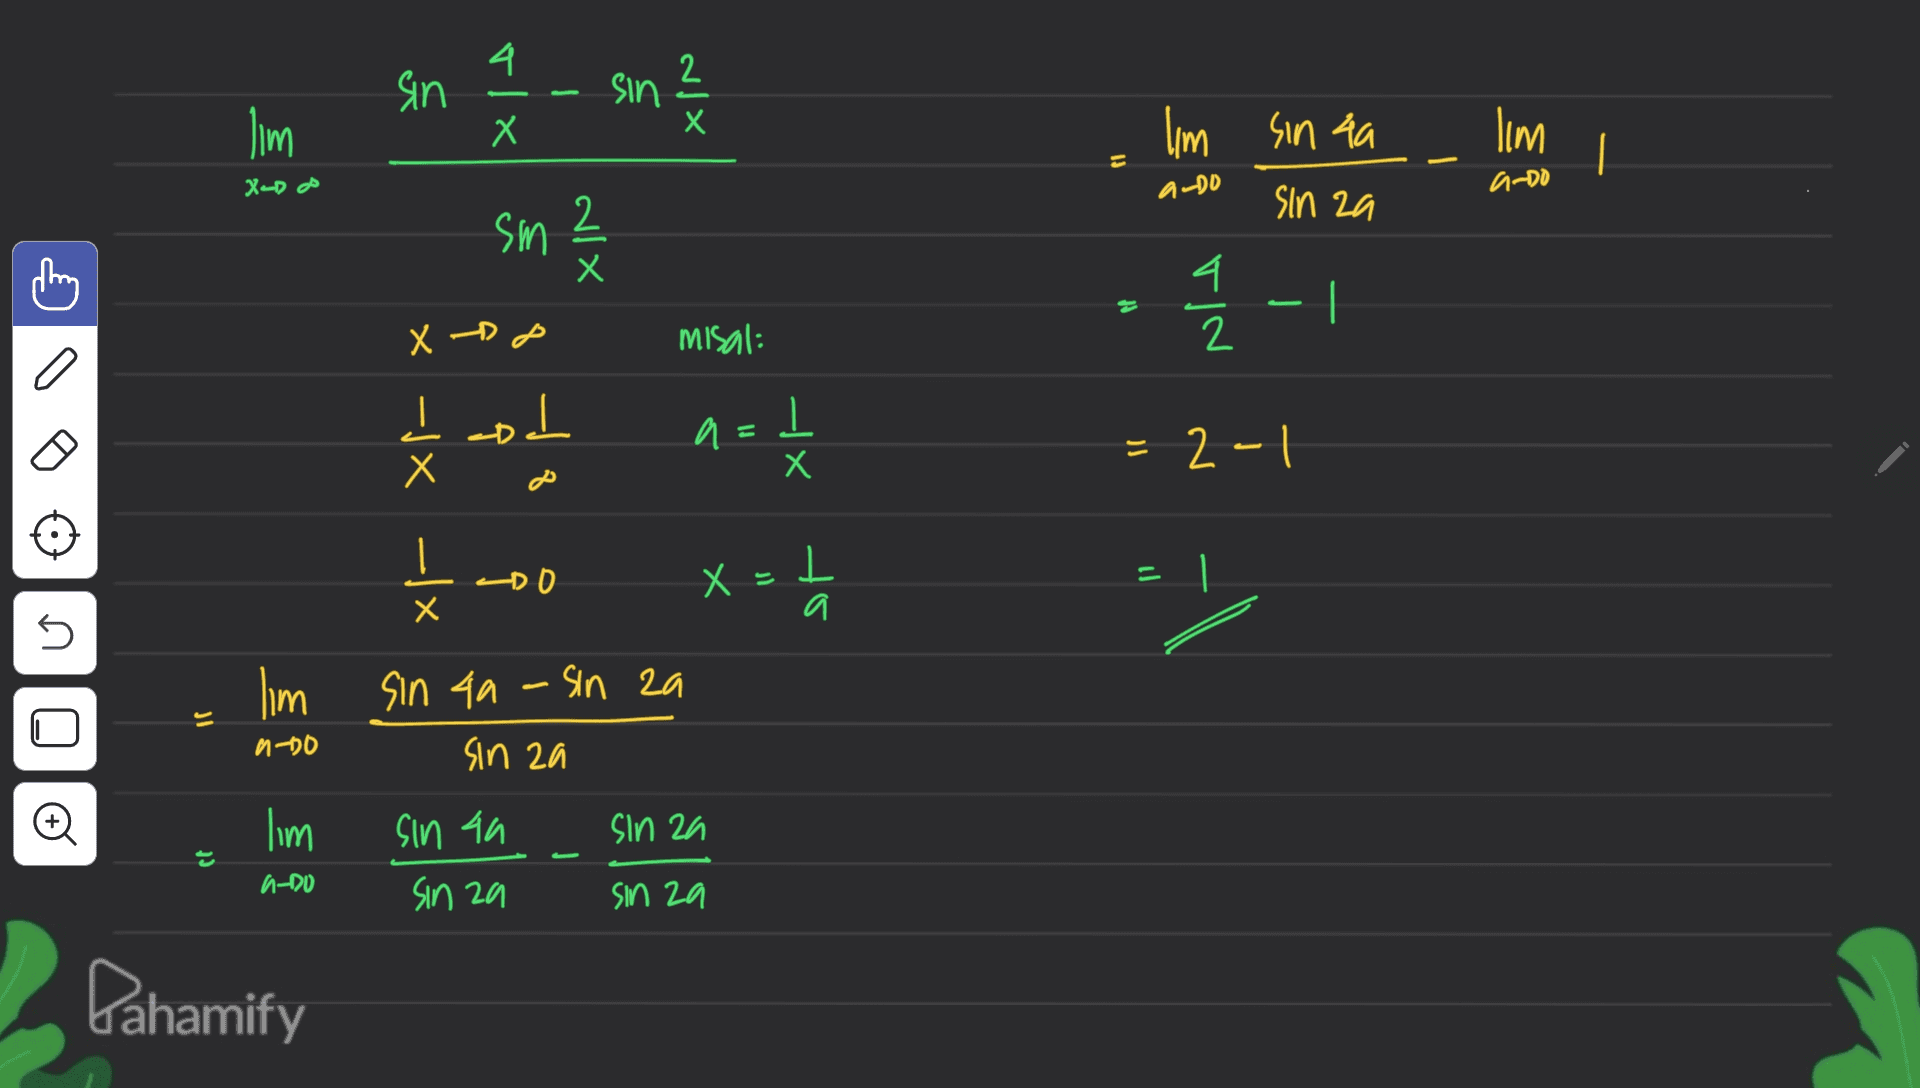 lim x→∞ (sin 4/x − sin 2/x) / (sin 2/x)
x → ∞ misal:
1/x → 1/∞ a = 1/x
1/x → 0 x = 1/a
= lim a→0 (sin 4a − sin 2a) / (sin 2a)
= lim a→0 (sin 4a)/(sin 2a) − (sin 2a)/(sin 2a)
= lim a→0 (sin 4a)/(sin 2a) − lim a→0 1
= 4/2 − 1
= 2 − 1
= 1
Pahamify